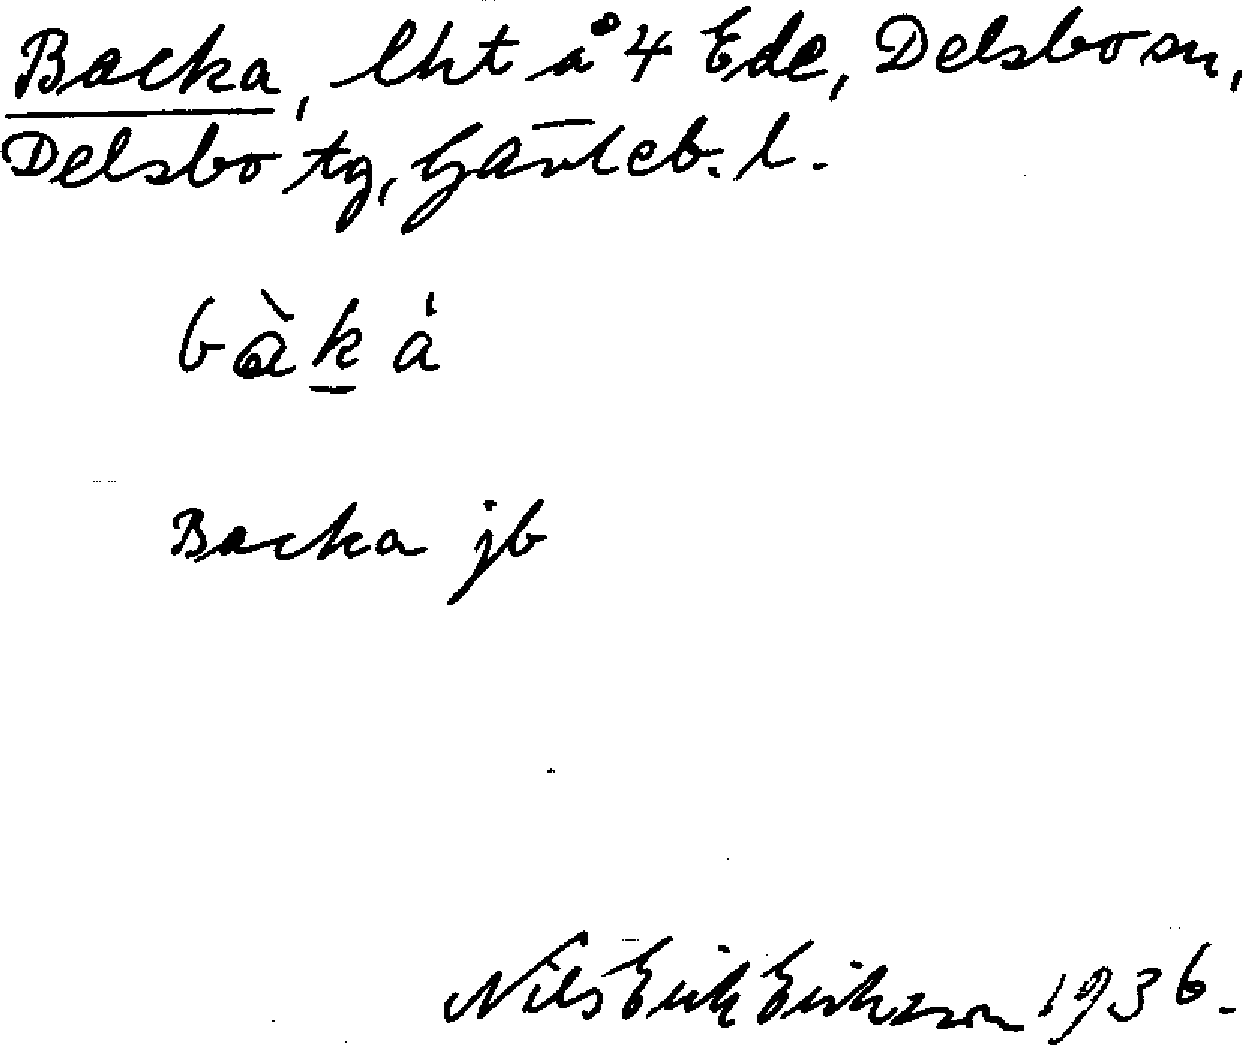 Backa, lht å 4 Ede, Delsbo sn,
Delsbo tg, Gävleb. l.
bàk̲á
Backa jb
Nils Erik Erikzson 1936.